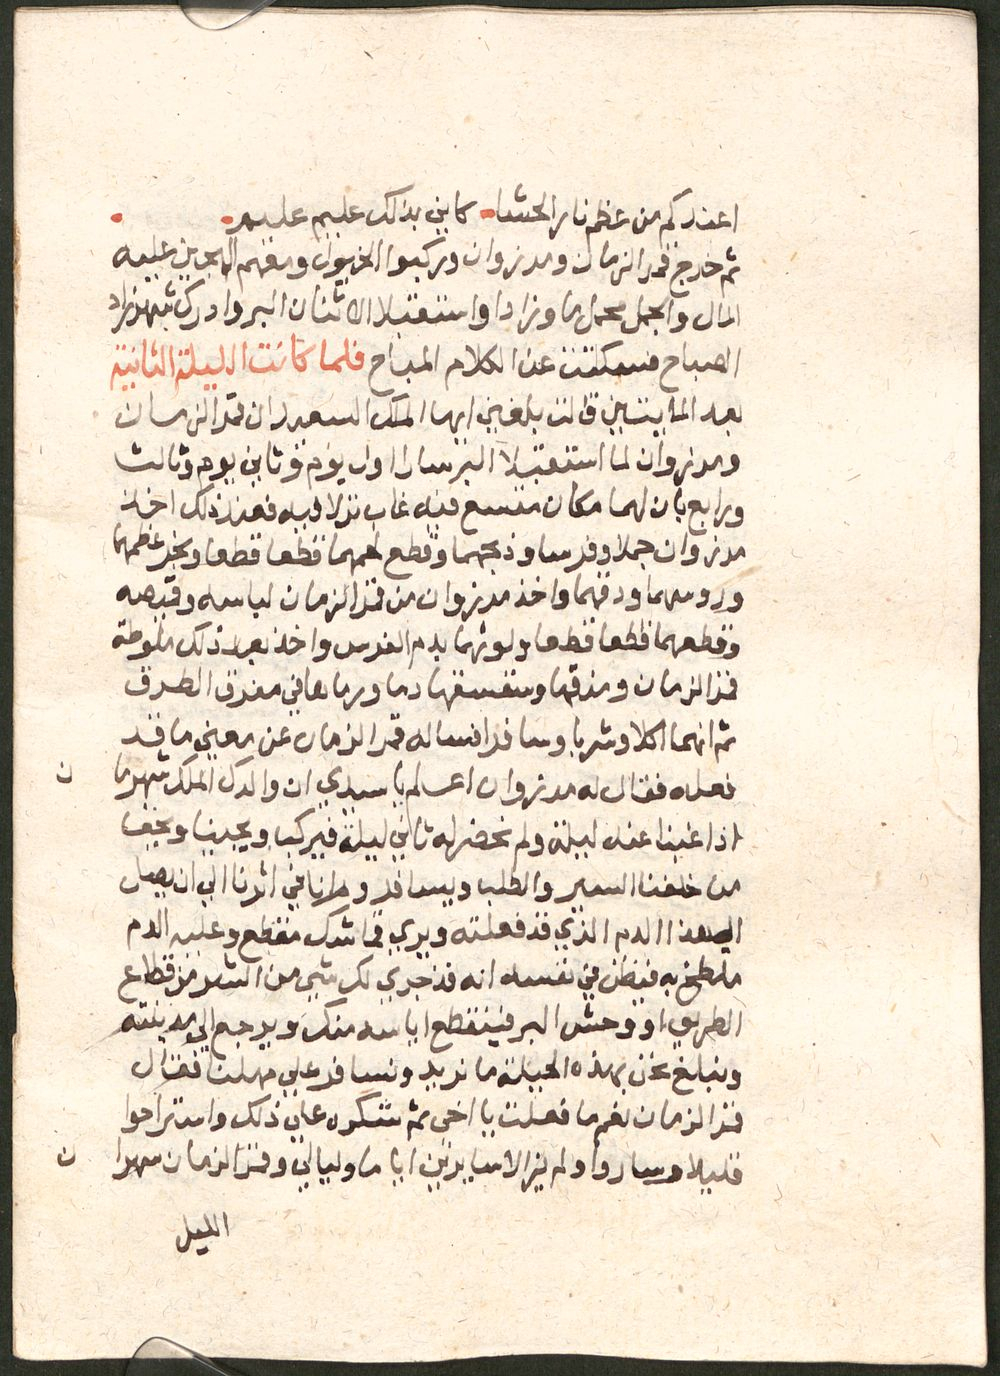 اعندكم من عظم نار الحشا كاني بذلك عليم عليم
ثم خرج قمر الزمان ومرزوان وركبوا الخيول ومعهم الهجين عليه
المال والجمل محمل ما وزادا واستقبلا الاثنان البر وادرك شهرزاد
الصباح فسكتت عن الكلام المباح فلما كانت الليلة الثانية
بعد المايتين قالت بلغني ايها الملك السعيد ان قمر الزمان
ومرزوان لما استقبلا البر سارا اول يوم وثاني يوم وثالث
ورابع بان لهما مكان متسع فيه غاب نزلا فيه فعند ذلك اخذ
مرزوان جملا وفرسا وذبحهما وقطع لحمهما قطعا قطعا ونجر عظمهما
وروسهما ودفنهما واخذ مرزوان من قمر الزمان لباسه وقميصه
وقطعهما قطعا قطعا ولوثهما بدم الفرس واخذ بعد ذلك ملوطة
قمر الزمان ومزقها وسقسقها دما ورماها في مفرق الطرق
ثم انهما اكلا وشربا وسافرا فساله قمر الزمان عن معني ما قد
فعله فقال له مرزوان اعلم يا سيدي ان والدك الملك شهرما ن
اذا غبنا عنه ليلة ولم نحضر له ثاني ليلة فيركب ويجي
من خلفنا السير والطلب ويسافر وراءنا في اثرنا الي ان يصل
الي هذا الدم الذي قد فعلته ويري قماشك مقطع وعليه الدم
ملطخ به فيظن في نفسه انه قد جري لك شي من الشر من قطاع
الطريق او وحش البر فينقطع اياسه منك ويرجع الي مدينته
ونبلغ نحن بهذه الحيلة ما نريد ونسافر علي مهلنا فقال
قمر الزمان نعم ما فعلت يا اخي ثم شكره علي ذلك واستراحوا
قليلا وساروا ولم يزالا سايرين اياما وليالي وقمر الزمان سهرا ن
الليل